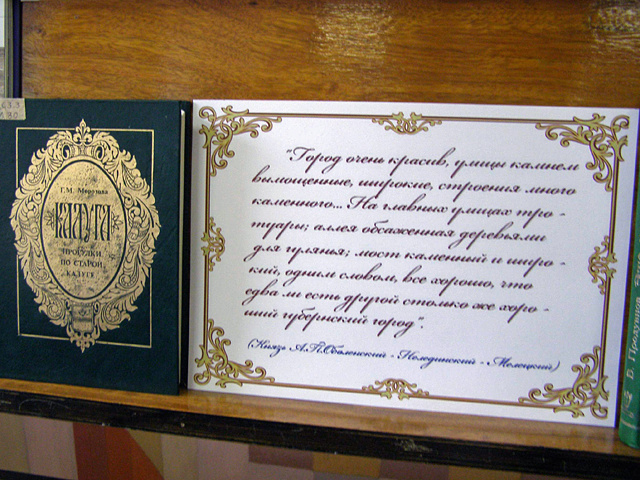 Г.М. Морозова
КАЛУГА
ПРОГУЛКИ
ПО СТАРОЙ
КАЛУГЕ
"Город очень красив, улицы камнем
вымощенные, широкие, строения много
каменного... На главных улицах тро -
туары; аллея обсаженная деревьями
для гулянья; мост каменный и широ -
кий, одним словом, все хорошо, что
едва ли есть другой столько же хоро -
ший губернский город".
(Князь А.П.Оболенский - Нелединский - Мелецкий)